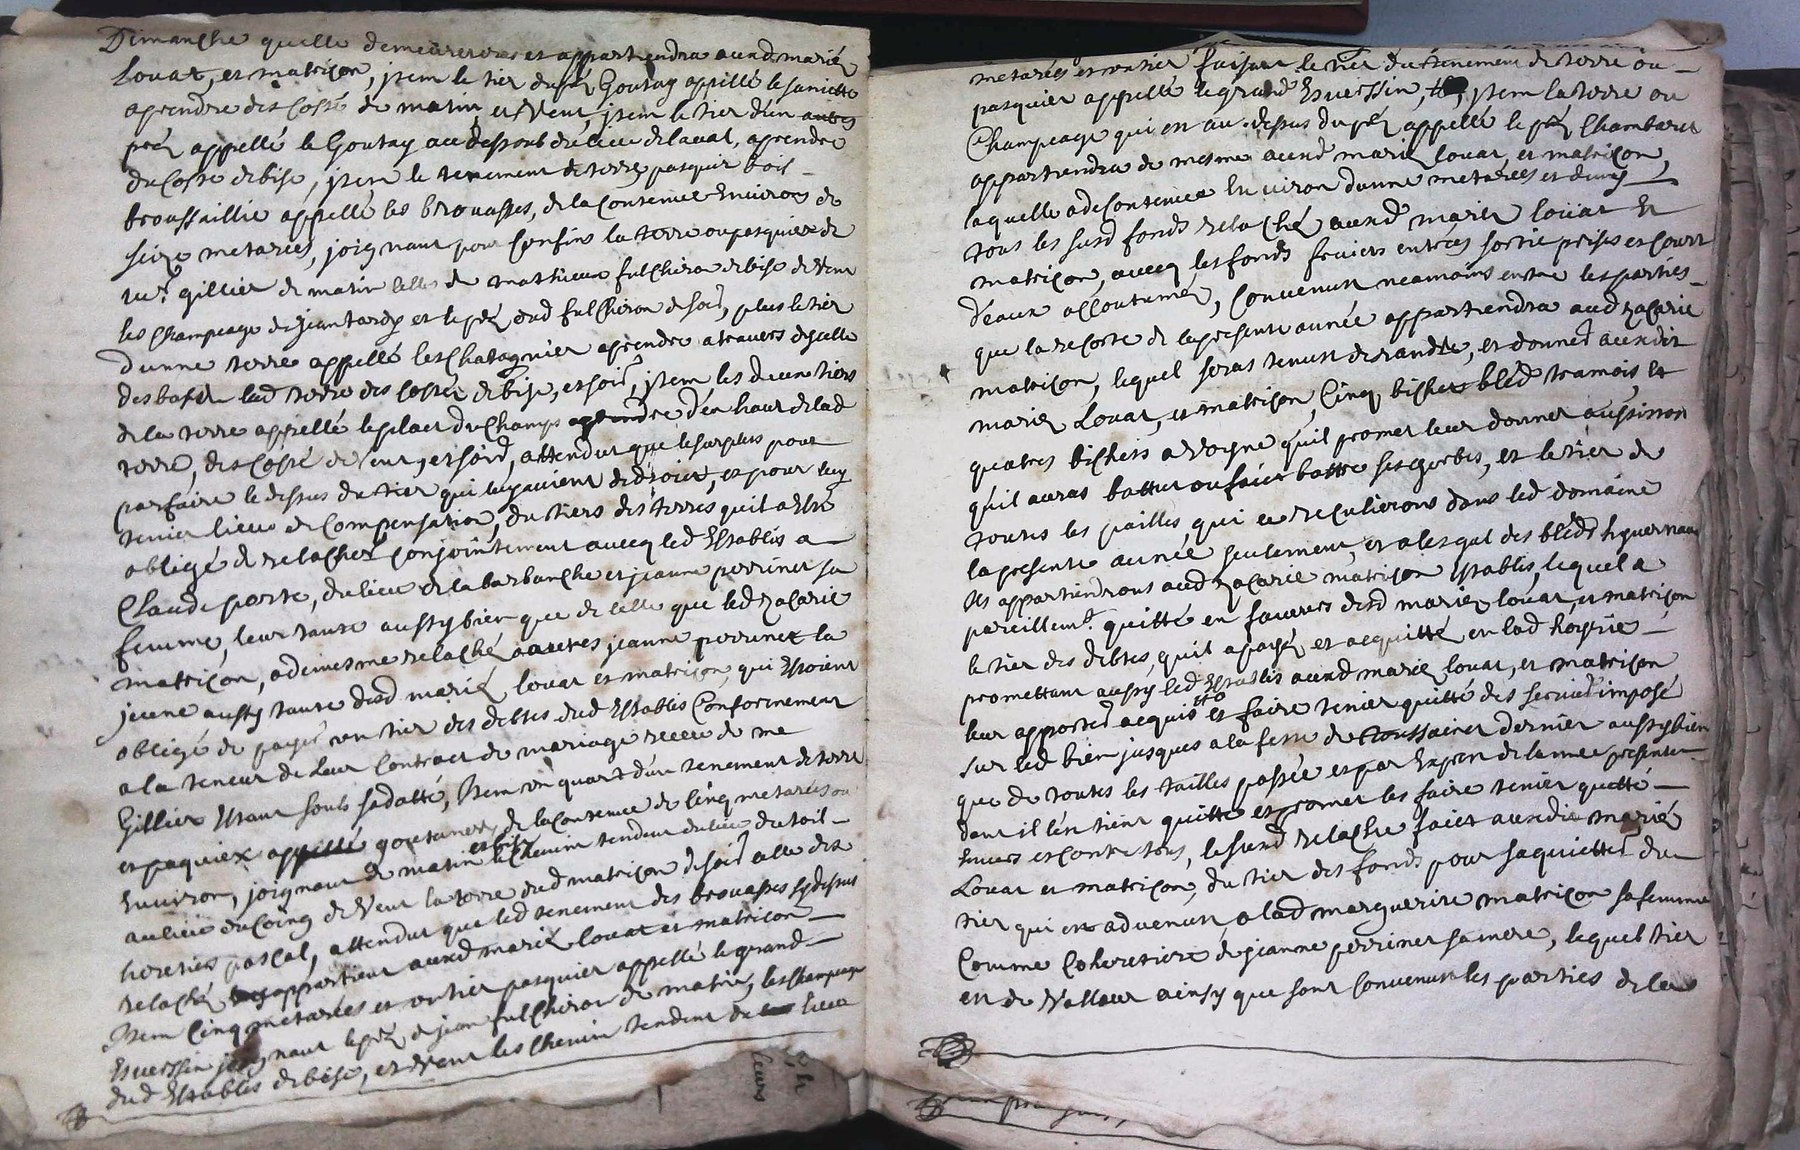 Dimanche quelle demeurerons et appartiendra auxd mariés
Louat, et matriçon, jtem le tier du pré Goutay appellé
aprendre des costé de matin, et Vent jtem le tier d'un
pré appellé le Goutay au dessoub du lieu de laval, aprendre
du Costé de bise, jtem le tenement de terre pasquier bois
broussaillie appellé les brouasses, de la Contenue Environ de
seize metarées, joignant pour Confins la terre ou pasquier de
me gillier de matin celle de mathieu fulchiron de bise de Vent
les Champeage de jean tardy et le pré dud fulchiron de soir, plus le tier
d'unne terre appellé les Chatagnier aprendre atravers dycelle
de lad terre des costés de bise, et soir, jtem les deux tiers
de la terre appellé le plat du Champs aprendre d'en haut de lad
terre, des Costé de Vent, et soir, attendut que le surplus pour
parfaire le dessus du tier qui luy avient de droit, et pour luy
tenir lieu de Compensation, du tiers des terres quil a Esté
obligé de relacher Conjointement avecq led Establis a
Claude porte, du lieu de la barbanche et jeanne perrinet sa
femme, leur tante aussy bien que de celle que led zacarie
matriçon, a de mesme relaché a autres jeanne perrinet la
jeune aussy tante desd mariés louat et matriçon, qui Estoient
obligé de payé un tier des debtes dud Establis Conformement
a la teneur de Leur Contract de mariage receu de me
Gillier Etant soub sa datte, Item un quart d'un tenement de terre
et paquiex appellé goutanex, de la Contenue de Cinq metarées ou
Environ, joignant de matin et bise le Chemin tendent du lieu du toil
au lieu du Coing de Vent la terre dud matriçon de soir celle des
heretiers pascal, attendut que led tenement des brouasses sydessus
relaché appartient auxd mariés louat et matriçon
Item Cinq metarées et un tier pasquier appellé le grand
Esverssin joignant le pré de jean fulchiron de matin, les Champeage
dud Establis de bise, et Vent les Chemin tendent du lieu
metarées et un tier faisant le tier du tenement de terre ou
pasquier appellé le grand Esverssin, jtem la terre ou
Champeage qui est au dessus du pré appellé le pré Chambaret
appartiendra de mesme auxd mariés louat, et matriçon,
laquelle a de Contenue Environ d'unne metarées et demy
tous les susd fonds relaché auxd mariés louat Et
matriçon, avecq les fonds fruiers entrées sortie prises et Court
d'eaux accoutumés, Convenut neamoins entre les parties
que la recorte de la presente année appartiendra aud zacarie
matriçon, lequel seras tenut de randre, et donner auxdit
mariés Louat, et matriçon Cinq bichet bled tramois, Et
quatres bichets avoyne qu'il promet leur donner aussitost
qu'il auras battut ou faict battre ses gerbes, et le tier de
toutes les pailles, qui ce reculierons dans led domaine
la presente année seulement, et a lesgat des bleds hyvernaux
Ils appartiendrons aud zacarie matriçon Establis, lequel a
pareillemt quitté en faveurs desd mariés louat, et matriçon
le tier des debtes, qu'il a payé et acquitté en lad hoyrie
promettant aussy led Establis auxd mariés louat, et matriçon
leur apporter acquis et faire tenir quitté des servis imposé
sur led bien jusques a la feste de toussaint dernier aussy bien
que de toutes les tailles passée et par Expres de l'année presente
dont il l'en tient quitte et promet les faire tenir quitté
Envers et Contre tous, le susd relaché faict auxdit mariés
Louat et matriçon, du tier des fonds pour s'aquitter du
tier qui est advenut, a lad marguerite matriçon sa femme
Comme Coheretiere de jeanne perrinet sa mere, lequel tier
est de Valleur ainsy que sont Convenut les parties de la